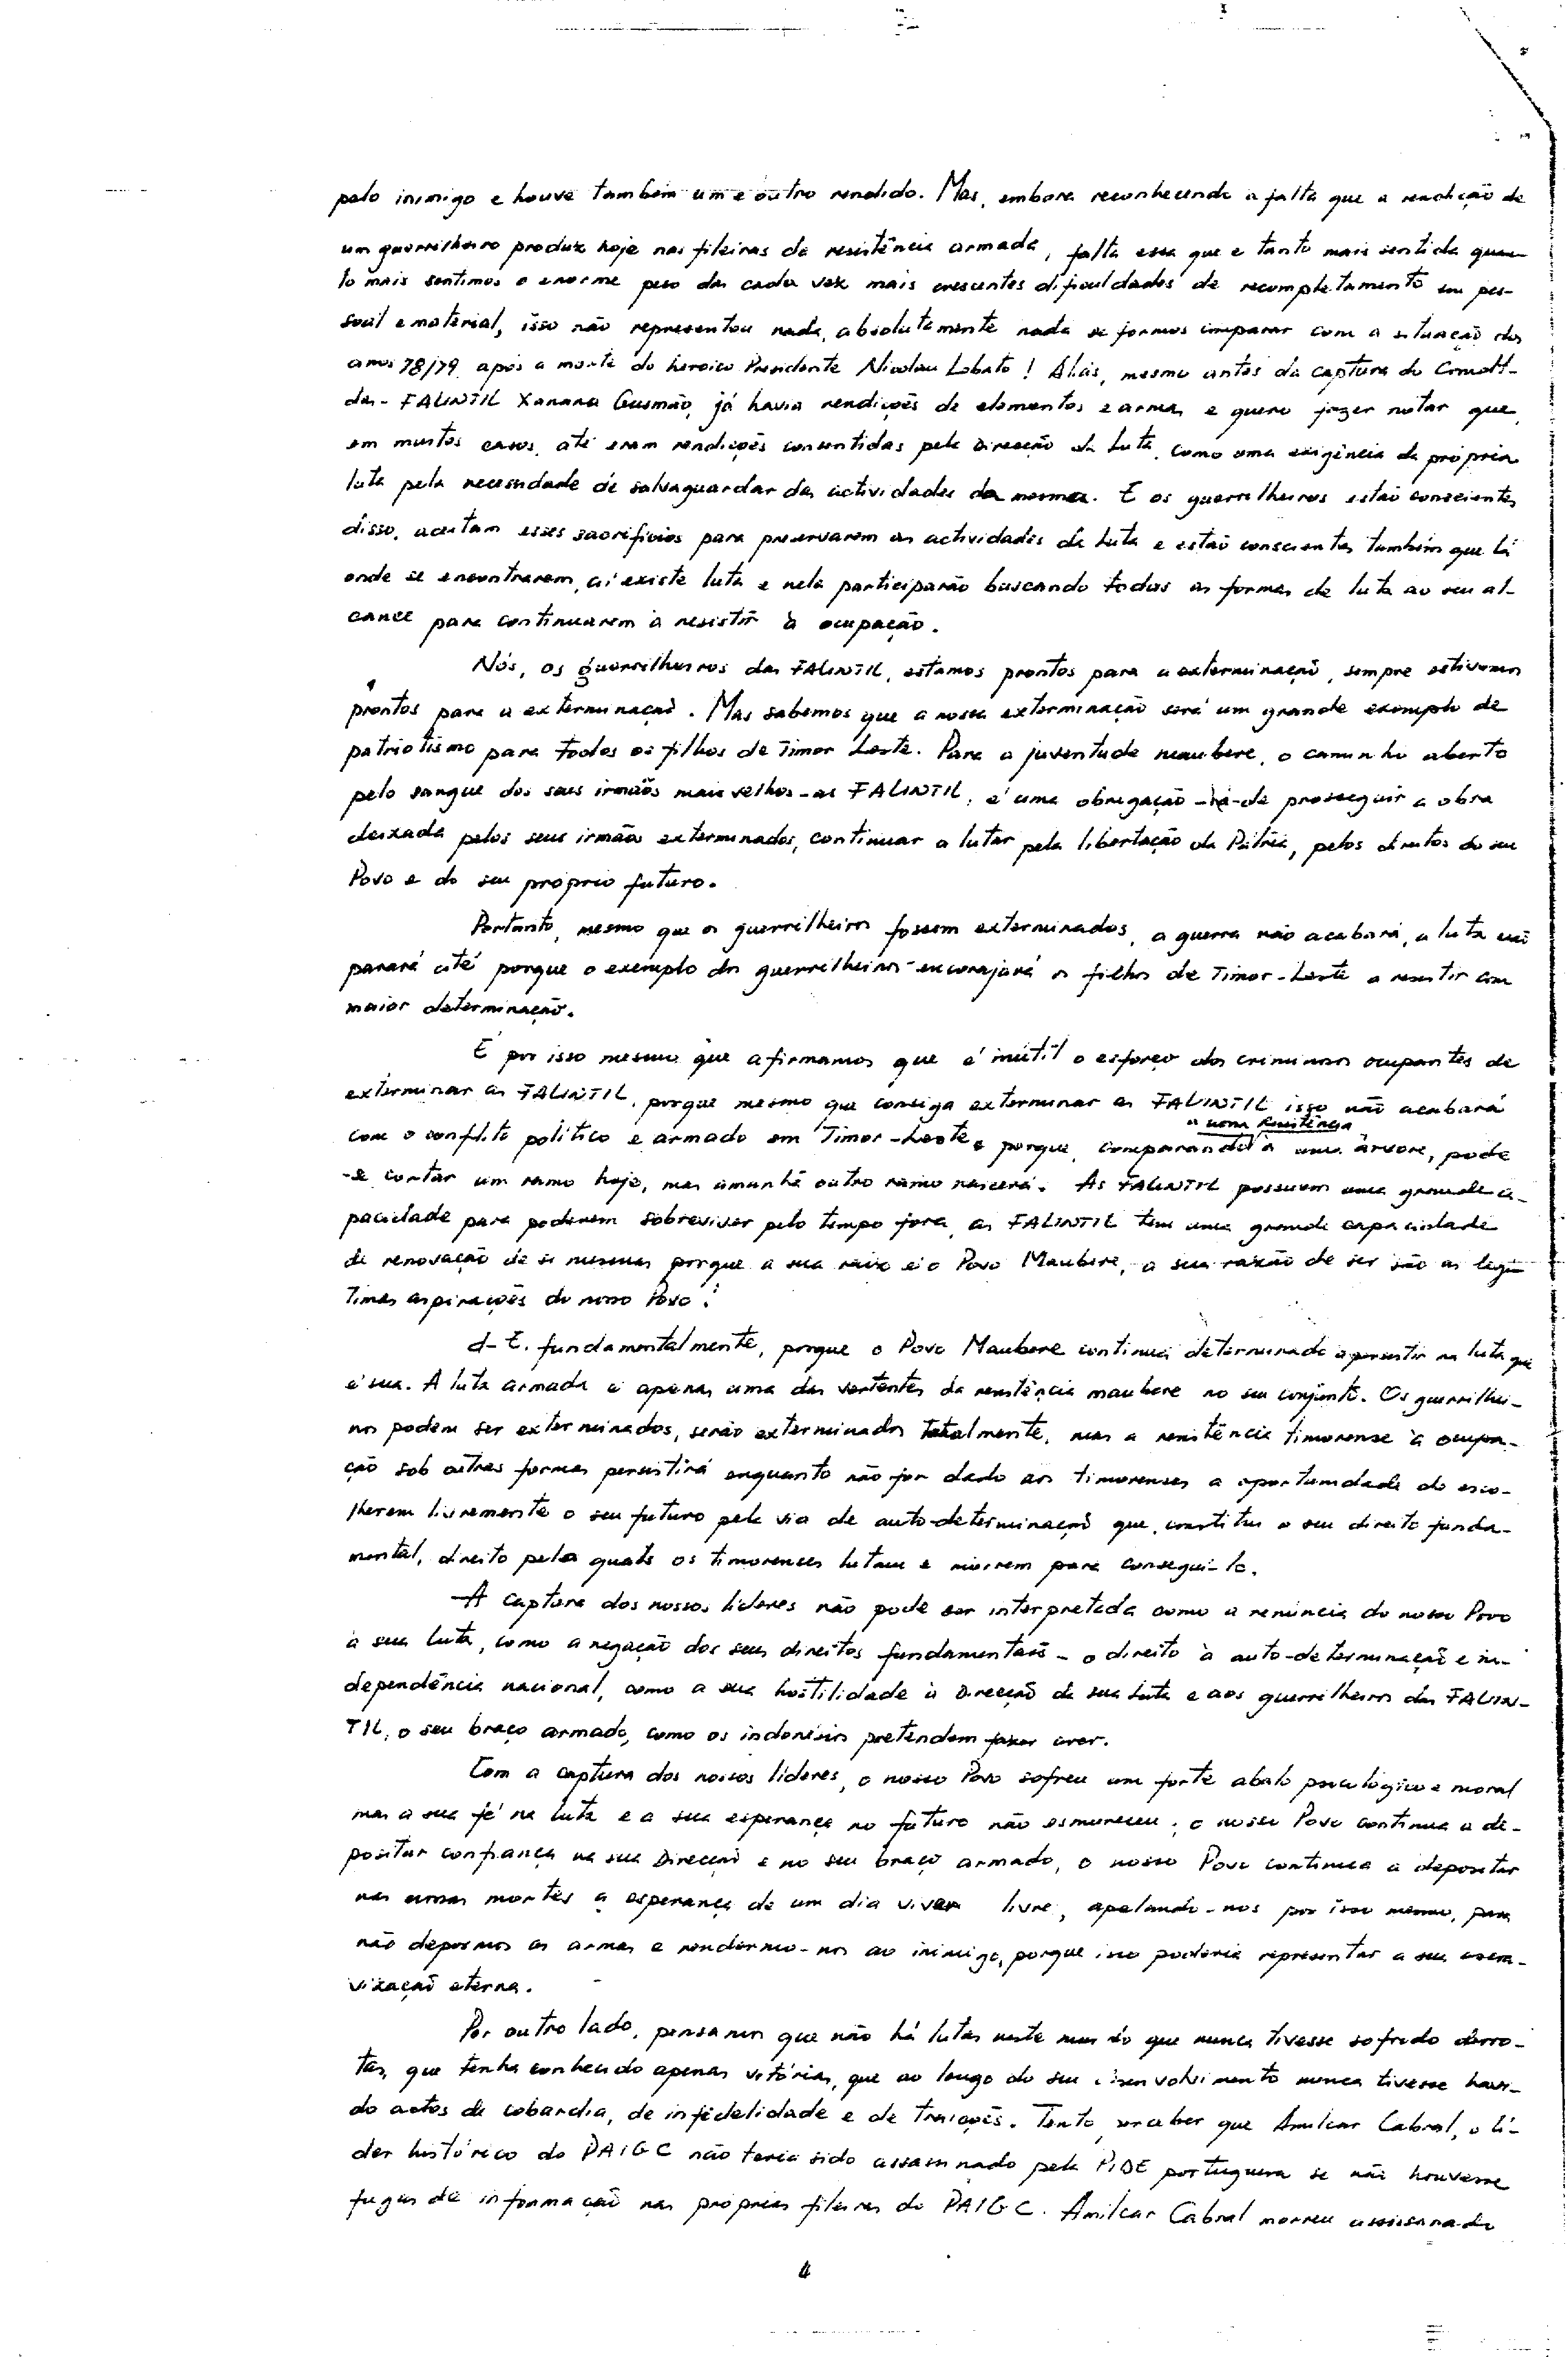 pelo inimigo e houve também um e outro rendido. Mas, embora reconhecendo a falta que a rendição de
um guerrilheiro produz hoje nas fileiras da resistência armada, falta essa que é tanto mais sentida quan-
to mais sentimos o enorme peso das cada vez mais crescentes dificuldades de recompletamento em pes-
soal e material, isso não representou nada, absolutamente nada se formos comparar com a situação dos
anos 78/79, após a morte do heroico Presidente Nicolau Lobato! Aliás, mesmo antes da captura do Cmdt-
das FALINTIL Xanana Gusmão, já havia rendições de elementos e armas e quero fazer notar que,
em muitos casos, até eram rendições consentidas pela Direcção da Luta, como uma exigência da própria
luta pela necessidade de salvaguardar das actividades da mesma. E os guerrilheiros estão conscientes
disso, aceitam esses sacrifícios para preservarem as actividades da Luta e estão conscientes também que lá
onde se encontrarem, aí existe luta e nela participarão buscando todas as formas de luta ao seu al-
cance para continuarem a resistir à ocupação.
Nós, os guerrilheiros das FALINTIL, estamos prontos para a exterminação, sempre estivemos
prontos para a exterminação. Mas sabemos que a nossa exterminação será um grande exemplo de
patriotismo para todos os filhos de Timor Leste. Para a juventude maubere, o caminho aberto
pelo sangue dos seus irmãos mais velhos - as FALINTIL, é uma obrigação - de prosseguir a obra
deixada pelos seus irmãos exterminados, continuar a lutar pela libertação da Pátria, pelos direitos do seu
Povo e do seu próprio futuro.
Portanto, mesmo que os guerrilheiros fossem exterminados, a guerra não acabará, a luta não
parará até porque o exemplo dos guerrilheiros encorajará os filhos de Timor-Leste a resistir com
maior determinação.
É por isso mesmo que afirmamos que é inútil o esforço dos criminosos ocupantes de
exterminar as FALINTIL, porque mesmo que consiga exterminar as FALINTIL isso não acabará
a nossa Resistência
com o conflito político e armado em Timor-Leste, porque, comparando à uma árvore, pode
-se cortar um ramo hoje, mas amanhã outro ramo nascerá. As FALINTIL possuem uma grande ca-
pacidade para poderem sobreviver pelo tempo fora, as FALINTIL tem uma grande capacidade
de renovação de si mesmas porque a sua raiz é o Povo Maubere, a sua razão de ser são as legí-
timas aspirações do nosso Povo!
d- E, fundamentalmente, porque o Povo Maubere continua determinado a persistir na luta que
é sua. A luta armada é apenas uma das vertentes da resistência maubere no seu conjunto. Os guerrilhei-
ros podem ser exterminados, serão exterminados totalmente, mas a resistência timorense à ocupa-
ção sob outras formas persistirá enquanto não for dado aos timorenses a oportunidade de esco-
lherem livremente o seu futuro pela via de auto-determinação que constitui o seu direito funda-
mental, direito pelo quals os timorenses lutam e morrem para consegui-lo.
A captura dos nossos líderes não pode ser interpretada como a renúncia do nosso Povo
à sua luta, como a negação dos seus direitos fundamentais - o direito à auto-determinação e in-
dependência nacional, como a sua hostilidade à Direcção da sua Luta e aos guerrilheiros das FALIN-
TIL, o seu braço armado, como os indonésios pretendem fazer crer.
Com a captura dos nossos líderes, o nosso Povo sofreu um forte abalo psicológico e moral
mas a sua fé na luta e a sua esperança no futuro não esmoreceu; o nosso Povo continua a de-
positar confiança na sua Direcção e no seu braço armado, o nosso Povo continua a depositar
nas nossas mortes a esperança de um dia viver livre, apelando-nos por isso mesmo, para
não depormos as armas e rendermo-nos ao inimigo, porque isso poderia representar a sua escra-
vização eterna.
Por outro lado, pensamos que não há lutas neste mundo que nunca tivesse sofrido derro-
tas, que tenha conhecido apenas vitórias, que ao longo do seu desenvolvimento nunca tivesse havi-
do actos de cobardia, de infidelidade e de traições. Tento perceber que Amilcar Cabral, o lí-
der histórico do PAIGC não teria sido assassinado pela PIDE portuguesa se não houvesse
fugas de informação nas próprias fileiras do PAIGC. Amilcar Cabral morreu assassinado
4